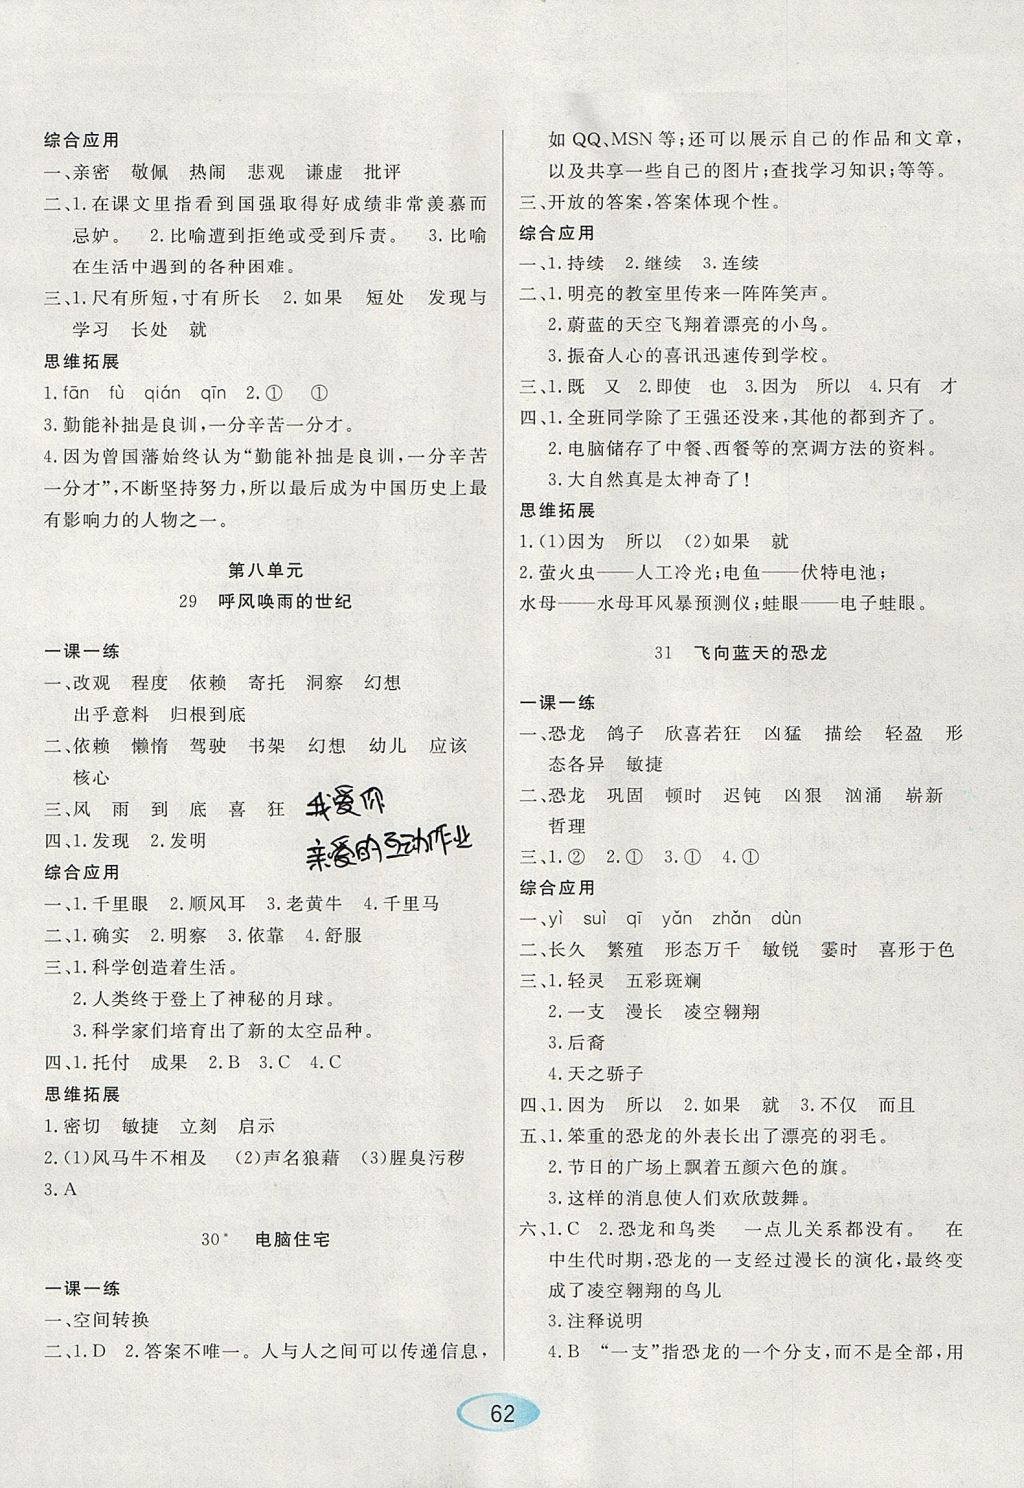 综合应用
一、亲密 敬佩 热闹 悲观 谦虚 批评
二、1.在课文里指看到国强取得好成绩非常羡慕而
忌妒。 2.比喻遭到拒绝或受到斥责。 3.比喻
在生活中遇到的各种困难。
三、1.尺有所短,寸有所长 2.如果 短处 发现与
学习 长处 就
思维拓展
1.fān fù qián qīn 2.① ①
3.勤能补拙是良训,一分辛苦一分才。
4.因为曾国藩始终认为“勤能补拙是良训,一分辛苦
一分才”,不断坚持努力,所以最后成为中国历史上最
有影响力的人物之一。
第八单元
29 呼风唤雨的世纪
一课一练
一、改观 程度 依赖 寄托 洞察 幻想
出乎意料 归根到底
二、依赖 懒惰 驾驶 书架 幻想 幼儿 应该
核心
三、风 雨 到 底 喜 狂
我爱你
四、1.发现 2.发明
亲爱的互动作业
综合应用
一、1.千里眼 2.顺风耳 3.老黄牛 4.千里马
二、1.确实 2.明察 3.依靠 4.舒服
三、1.科学创造着生活。
2.人类终于登上了神秘的月球。
3.科学家们培育出了新的太空品种。
四、1.托付 成果 2.B 3.C 4.C
思维拓展
1.密切 敏捷 立刻 启示
2.(1)风马牛不相及 (2)声名狼藉 (3)腥臭污秽
3.A
30* 电脑住宅
一课一练
一、空间转换
二、1.D 2.答案不唯一。人与人之间可以传递信息,
如QQ、MSN等;还可以展示自己的作品和文章,
以及共享一些自己的图片;查找学习知识;等等。
三、开放的答案,答案体现个性。
综合应用
一、1.持续 2.继续 3.连续
二、1.明亮的教室里传来一阵阵笑声。
2.蔚蓝的天空飞翔着漂亮的小鸟。
3.振奋人心的喜讯迅速传到学校。
三、1.既 又 2.即使 也 3.因为 所以 4.只有 才
四、1.全班同学除了王强还没来,其他的都到齐了。
2.电脑储存了中餐、西餐等的烹调方法的资料。
3.大自然真是太神奇了!
思维拓展
1.(1)因为 所以 (2)如果 就
2.萤火虫——人工冷光;电鱼——伏特电池;
水母——水母耳风暴预测仪;蛙眼——电子蛙眼。
31 飞向蓝天的恐龙
一课一练
一、恐龙 鸽子 欣喜若狂 凶猛 描绘 轻盈 形
态各异 敏捷
二、恐龙 巩固 顿时 迟钝 凶狠 汹涌 崭新
哲理
三、1.② 2.① 3.① 4.①
综合应用
一、yì suì qī yǎn zhǎn dùn
二、长久 繁殖 形态万千 敏锐 霎时 喜形于色
三、1.轻灵 五彩斑斓
2.一支 漫长 凌空翱翔
3.后裔
4.天之骄子
四、1.因为 所以 2.如果 就 3.不仅 而且
五、1.笨重的恐龙的外表长出了漂亮的羽毛。
2.节日的广场上飘着五颜六色的旗。
3.这样的消息使人们欢欣鼓舞。
六、1.C 2.恐龙和鸟类 一点儿关系都没有。 在
中生代时期,恐龙的一支经过漫长的演化,最终变
成了凌空翱翔的鸟儿
3.注释说明
4.B “一支”指恐龙的一个分支,而不是全部,用
62